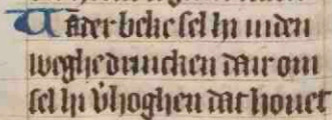 Uander beke sel hi inden
weghe drincken dair om
sel hi v̄hoghen dat houet